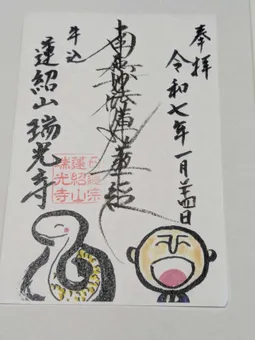 奉拝
令和七年一月廿四日
南無妙法蓮華経
牛込
蓮紹山 瑞光寺
日蓮宗
蓮紹山
瑞光寺